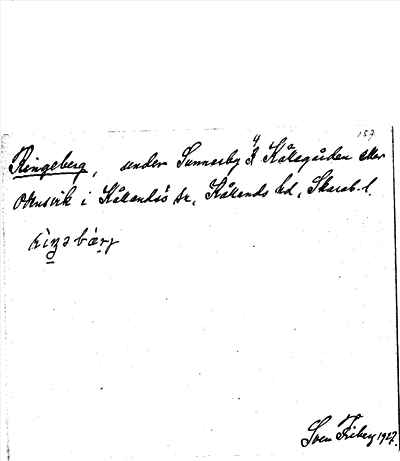 157
Ringeberg, under Sunnersby 4 Källegården eller
Odensvik i Kållandsö sn, Kållands hd, Skarab. l.
Sven Friberg 1927.